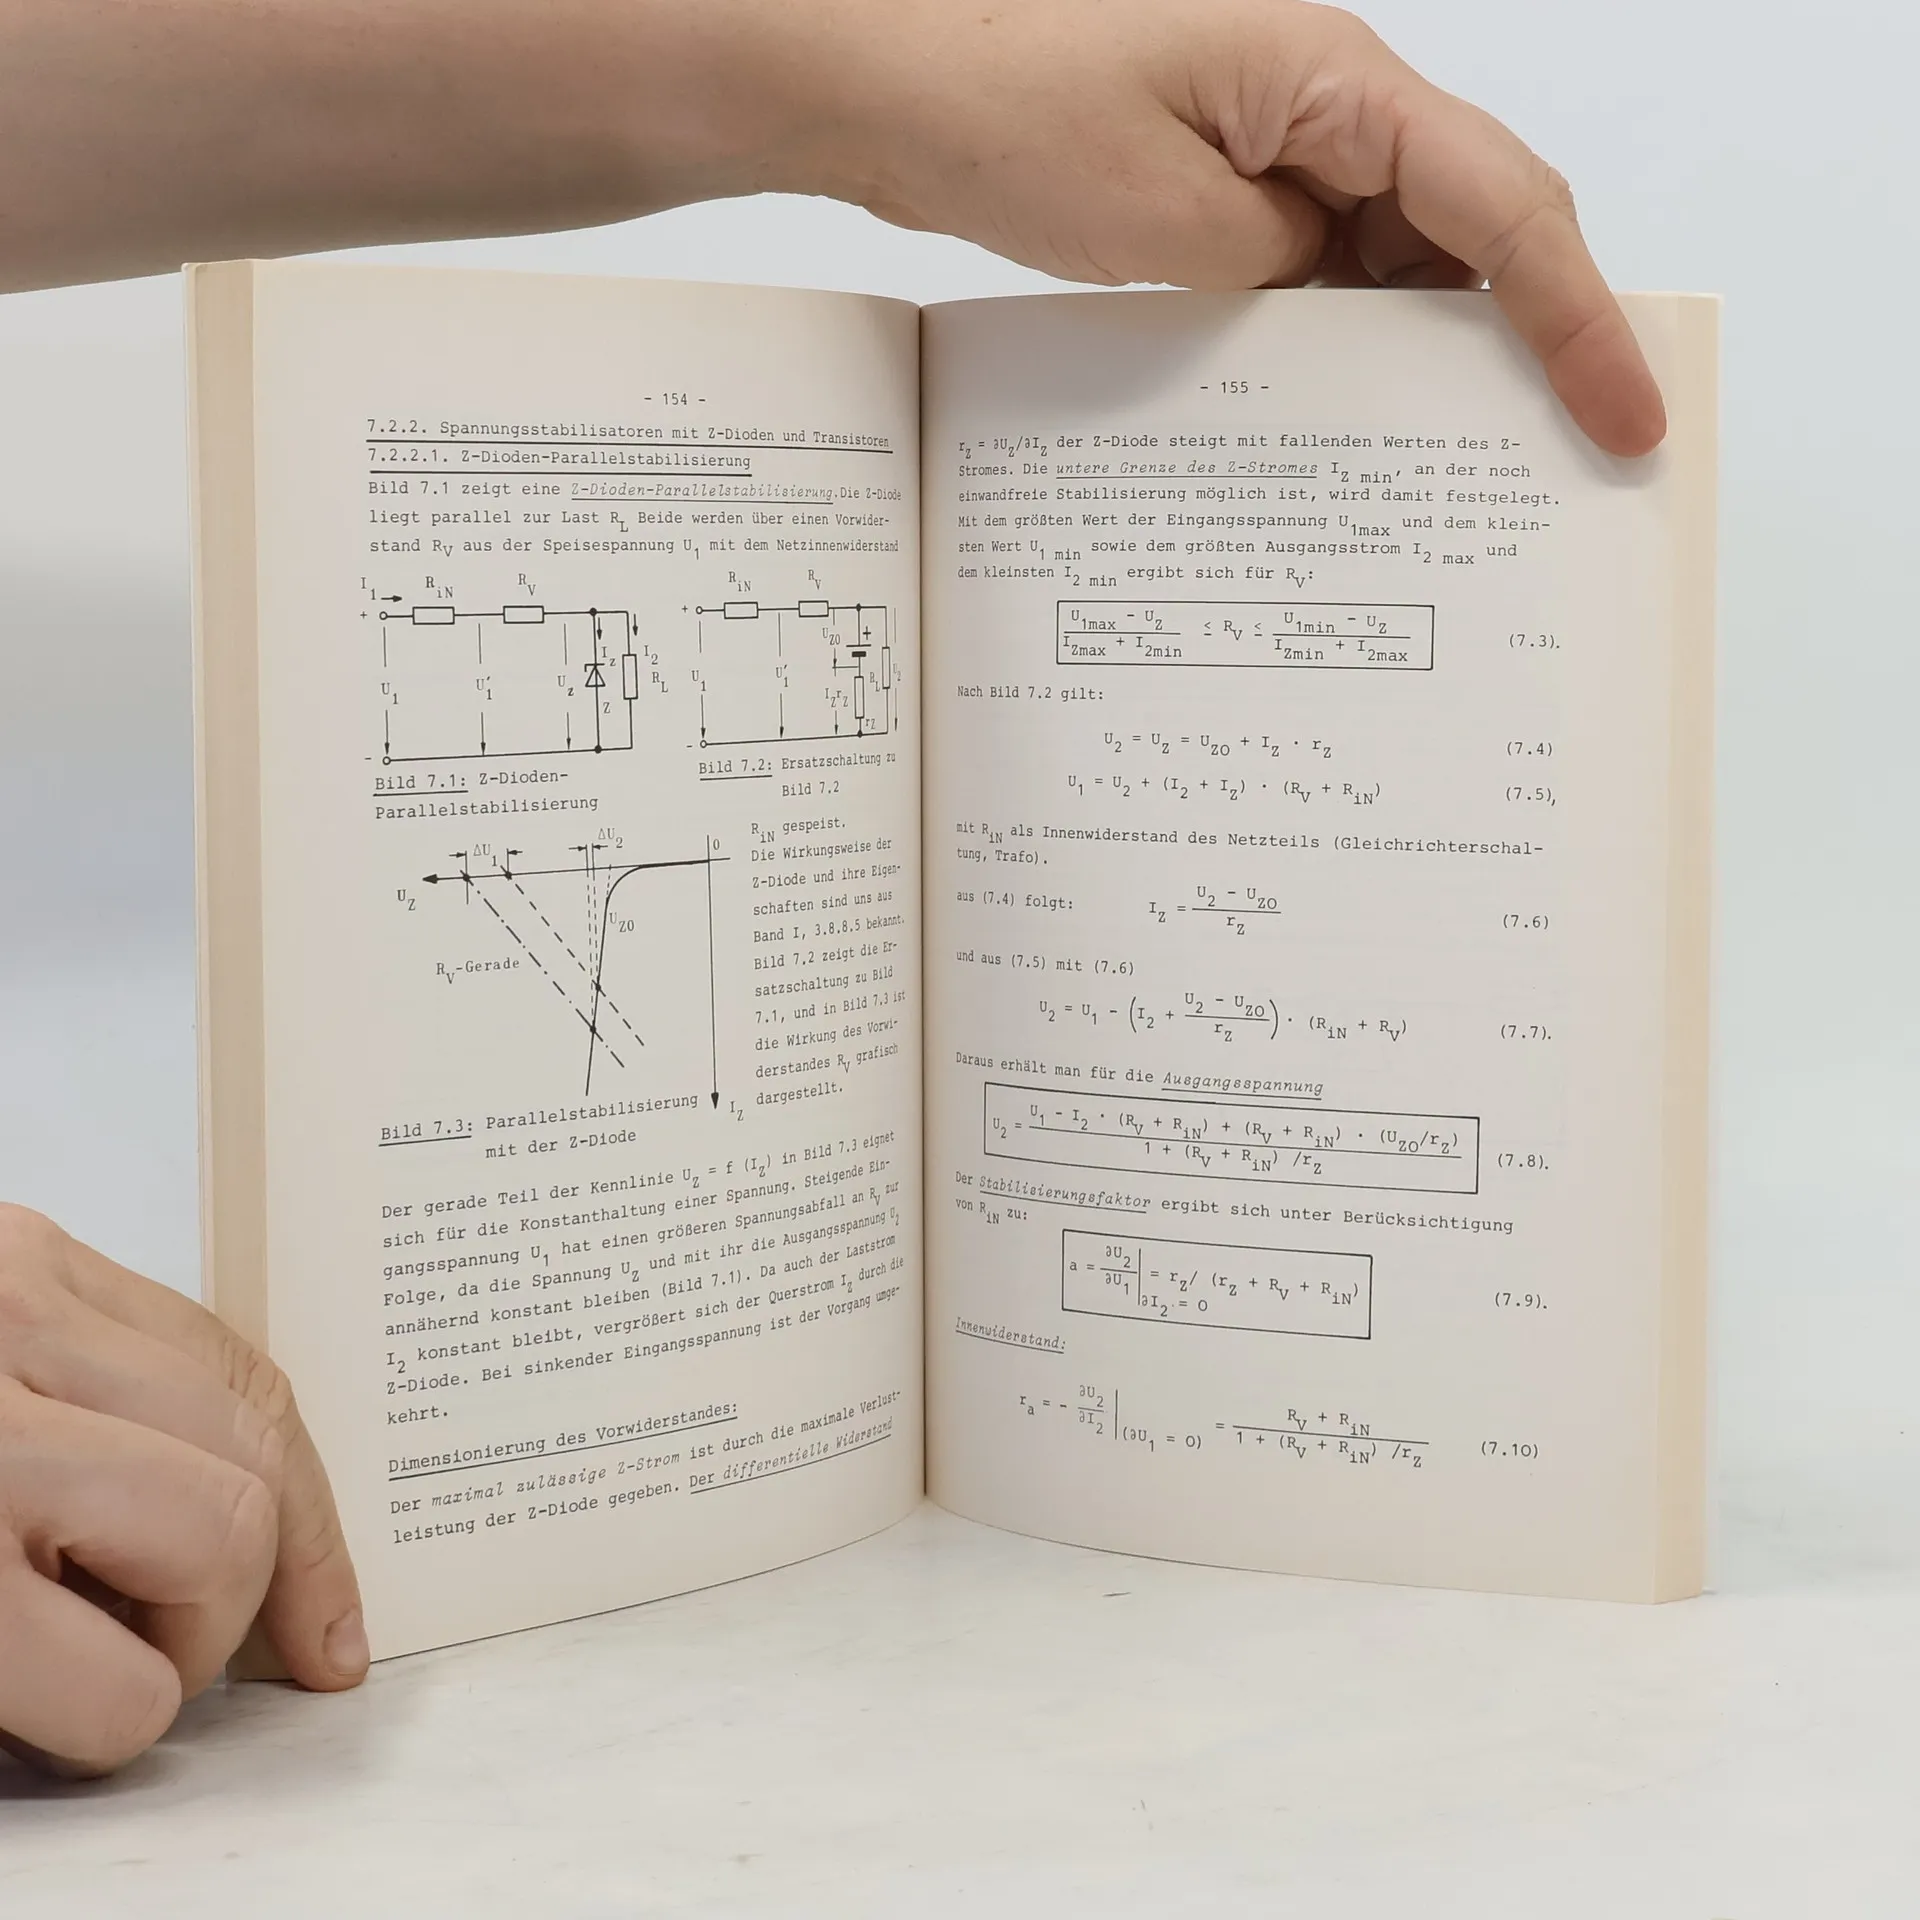 - 154 -
7.2.2. Spannungsstabilisatoren mit Z-Dioden und Transistoren
7.2.2.1. Z-Dioden-Parallelstabilisierung
Bild 7.1 zeigt eine Z-Dioden-Parallelstabilisierung. Die Z-Diode
liegt parallel zur Last R_L Beide werden über einen Vorwider-
stand R_V aus der Speisespannung U_1 mit dem Netzinnenwiderstand
I_1 R_iN R_V
+
U_1 U_1' U_z I_z Z I_2 R_L
-
R_iN R_V
+
U_1 U_1' U_ZO + I_Z r_Z r_Z R_L U_2
-
Bild 7.1: Z-Dioden-
Parallelstabilisierung
Bild 7.2: Ersatzschaltung zu
Bild 7.2
ΔU_1 ΔU_2 0
U_Z
U_ZO
R_V-Gerade
I_Z
Bild 7.3: Parallelstabilisierung
mit der Z-Diode
R_iN gespeist.
Die Wirkungsweise der
Z-Diode und ihre Eigen-
schaften sind uns aus
Band I, 3.8.8.5 bekannt.
Bild 7.2 zeigt die Er-
satzschaltung zu Bild
7.1, und in Bild 7.3 ist
die Wirkung des Vorwi-
derstandes R_V grafisch
dargestellt.
Der gerade Teil der Kennlinie U_Z = f (I_Z) in Bild 7.3 eignet
sich für die Konstanthaltung einer Spannung. Steigende Ein-
gangsspannung U_1 hat einen größeren Spannungsabfall an R_V zur
Folge, da die Spannung U_Z und mit ihr die Ausgangsspannung U_2
annähernd konstant bleiben (Bild 7.1). Da auch der Laststrom
I_2 konstant bleibt, vergrößert sich der Querstrom I_Z durch die
Z-Diode. Bei sinkender Eingangsspannung ist der Vorgang umge-
kehrt.
Dimensionierung des Vorwiderstandes:
Der maximal zulässige Z-Strom ist durch die maximale Verlust-
leistung der Z-Diode gegeben. Der differentielle Widerstand
- 155 -
r_Z = ∂U_Z/∂I_Z der Z-Diode steigt mit fallenden Werten des Z-
Stromes. Die untere Grenze des Z-Stromes I_Z min, an der noch
einwandfreie Stabilisierung möglich ist, wird damit festgelegt.
Mit dem größten Wert der Eingangsspannung U_1max und dem klein-
sten Wert U_1 min sowie dem größten Ausgangsstrom I_2 max und
dem kleinsten I_2 min ergibt sich für R_V:
(U_1max - U_Z)/(I_Zmax + I_2min) ≤ R_V ≤ (U_1min - U_Z)/(I_Zmin + I_2max) (7.3).
Nach Bild 7.2 gilt:
U_2 = U_Z = U_ZO + I_Z · r_Z (7.4)
U_1 = U_2 + (I_2 + I_Z) · (R_V + R_iN) (7.5),
mit R_iN als Innenwiderstand des Netzteils (Gleichrichterschal-
tung, Trafo).
aus (7.4) folgt: I_Z = (U_2 - U_ZO)/r_Z (7.6)
und aus (7.5) mit (7.6)
U_2 = U_1 - (I_2 + (U_2 - U_ZO)/r_Z) · (R_iN + R_V) (7.7).
Daraus erhält man für die Ausgangsspannung
U_2 = (U_1 - I_2 · (R_V + R_iN) + (R_V + R_iN) · (U_ZO/r_Z))/(1 + (R_V + R_iN) /r_Z) (7.8).
Der Stabilisierungsfaktor ergibt sich unter Berücksichtigung
von R_iN zu:
a = ∂U_2/∂U_1 |∂I_2 = 0 = r_Z/ (r_Z + R_V + R_iN) (7.9).
Innenwiderstand:
r_a = - ∂U_2/∂I_2 |(∂U_1 = 0) = (R_V + R_iN)/(1 + (R_V + R_iN) /r_Z) (7.10)